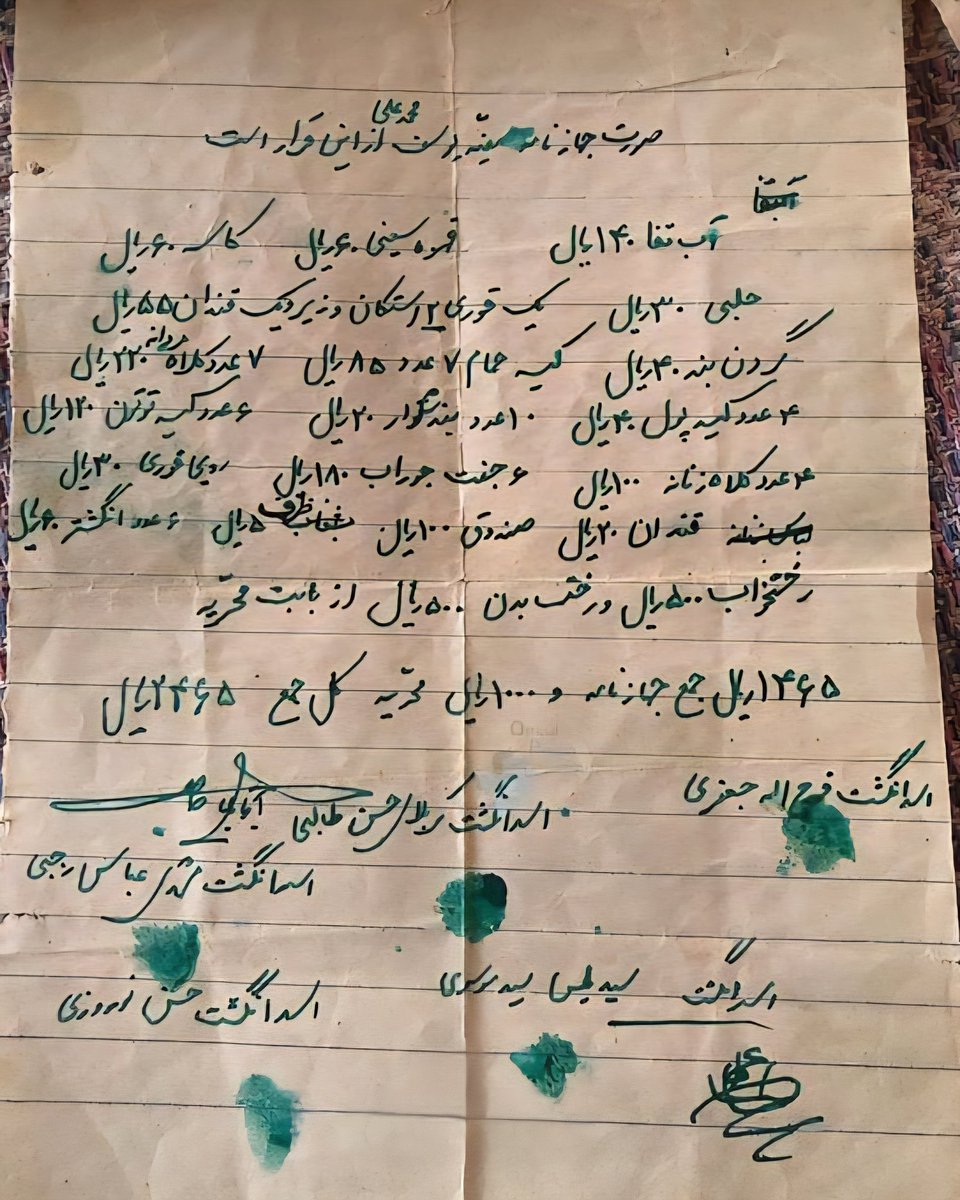 محمد علی
صورت جهاز نامه از این قرار است
آب تفا ۱۴۰ ریال قهوه سینی ۶۰ ریال کاسه ۶۰ ریال
حلبی ۳۰ ریال یک قوری ۲ استکان و زیر و یک قندان ۵۵ ریال
گردن بند ۴۰ ریال کیسه حمام ۷ عدد ۸۵ ریال ۷ عدد کلاه مردانه ۲۲۰ ریال
۴ عدد کیسه پول ۴۰ ریال ۱۰ عدد بند شلوار ۲۰ ریال ۶ عدد کیسه توتون ۱۲۰ ریال
۴ عدد کلاه زنانه ۱۰۰ ریال ۶ جفت جوراب ۱۸۰ ریال روی قوری ۳۰ ریال
قندان ۲۰ ریال صندوق ۱۰۰ ریال ظرف ۵ ریال ۶ عدد انگشتر ۶۰ ریال
رختخواب ۵۰۰ ریال و رخت بدن ۵۰۰ ریال از بابت مهریه
۱۴۶۵ ریال جمع جهاز نامه و ۱۰۰۰ ریال مهریه کل جمع ۲۴۶۵ ریال
اسر انگشت فرج اله جعفری
اسر انگشت کربلای حسن طالبی
اسر انگشت مشهدی عباس رجبی
اسر انگشت سید موسوی
اسر انگشت حسن نوروزی